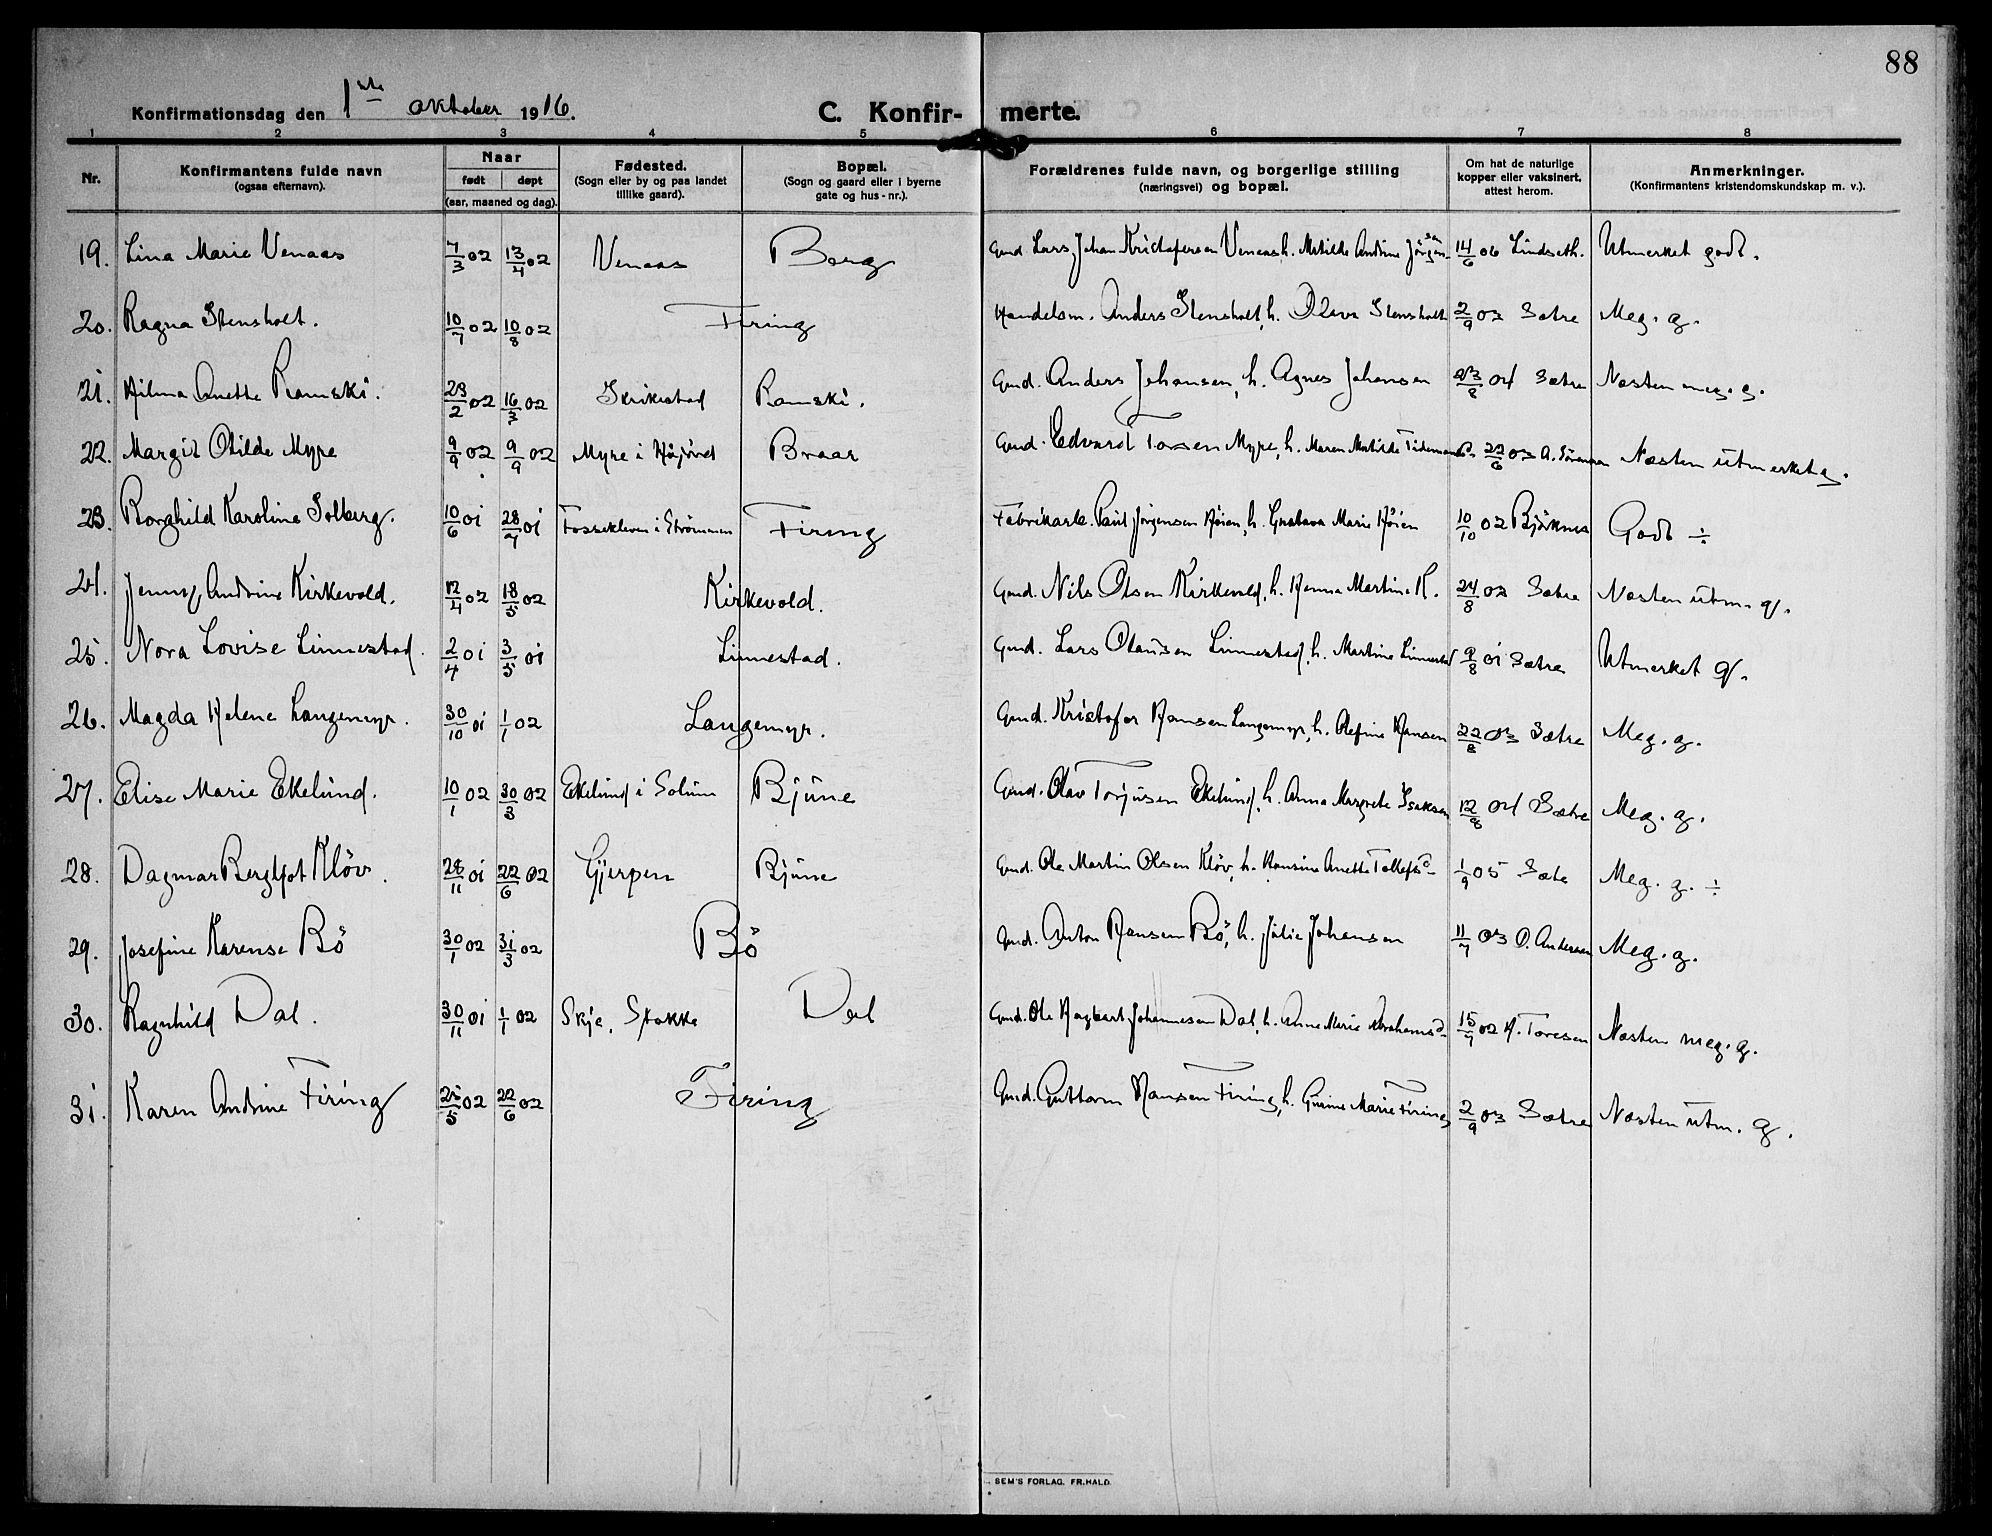 88
Konfirmationsdag den 1ste oktober 1916. C. Konfir- merte.
1 2 3 4 5 6 7 8
Nr. Konfirmantens fulde navn (ogsaa efternavn). Naar født døpt (aar, maaned og dag). Fødested. (Sogn eller by og paa landet tillike gaard). Bopæl. (Sogn og gaard eller i byerne gate og hus-nr.). Forældrenes fulde navn, og borgerlige stilling (næringsvei) og bopæl. Om hat de naturlige kopper eller vaksinert, attest herom. Anmerkninger. (Konfirmantens kristendomskundskap m. v.).
19. Lina Marie Venaas 7/3 02 13/4 02 Venaas Berg Gmd. Lars Johan Kristofersen Venaas, h. Matilde Andrine Jørgensen 14/6 06 Lindseth. Utmerket godt.
20. Ragna Stensholt. 10/7 02 10/8 02 Firing Handelsm. Anders Stensholt, h. Olava Stensholt 2/9 03 Sætre Meg. g.
21. Hilma Anette Ramski. 23/2 02 16/3 02 Skrikestad Ramski. Gmd. Anders Johansen, h. Agnes Johansen 23/8 04 Sætre Næsten meg. g.
22. Margit Otilde Myre 9/9 02 9/9 02 Myre i Braar Gmd. Edvard Torsen Myre, h. Maren Matilde 22/6 03 A. Sørensen Næsten utmerket g.
23. Borghild Karoline Solberg. 10/6 01 28/7 01 Fossekleven i Strømmen Firing Fabrikarb. Paul Jørgensen Høien, h. Gustava Marie Høien 10/10 02 Bjørknes Godt ÷
24. Jenny Andrine Kirkevold. 12/4 02 18/5 02 Kirkevold. Gmd. Nils Olsen Kirkevold, h. Hanna Martine K. 24/8 03 Sætre Næsten utm. g.
25. Nora Lovise Linnestad. 2/4 01 3/5 01 Linnestad. Gmd. Lars Olausen Linnestad, h. Martine Linnestad 9/8 01 Sætre Utmerket g.
26. Magda Helene Langemyr. 30/10 01 1/1 02 Langemyr. Gmd. Kristofer Hansen Langemyr, h. Olefine Hansen 22/8 03 Sætre Meg. g.
27. Elise Marie Ekelund. 10/1 02 30/3 02 Ekelund i Solum Bjune Gmd. Olav Torjusen Ekelund, h. Anna Margrete Isaksen 12/8 04 Sætre Meg. g.
28. Dagmar Bergljot Kløv. 28/11 01 22/6 02 Gjerpen Bjune Gmd. Ole Martin Olsen Kløv, h. Hansine Anette Tollefsd. 1/9 05 Sæte Meg. g. ÷
29. Josefine Karense Bö 30/1 02 31/3 02 Bö Gmd. Anton Hansen Bö, h. Julie Johansen 11/7 03 O. Andersen Meg. g.
30. Ragnhild Dal. 30/11 01 1/1 02 Skje, Stokke Dal Gmd. Ole Hagbart Johannesen Dal, h. Anne Marie Abrahamsd. 15/7 02 H. Toresen Næsten meg. g.
31. Karen Andrine Firing 25/5 02 22/6 02 Firing Gmd. Guttorm Hansen Firing, h. Gurine Marie Firing 2/9 03 Sætre Næsten utm. g.
SEM'S FORLAG. FR. HALD.